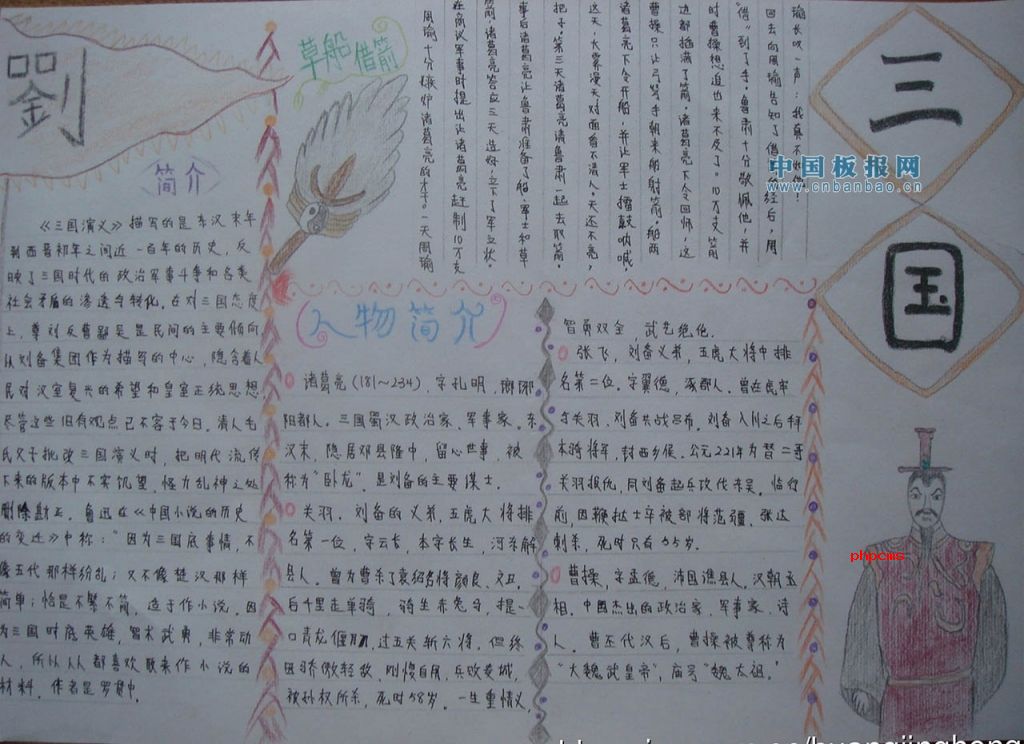 劉
简介
《三国演义》描写的是东汉末年
到西晋初年之间近一百年的历史，反
映了三国时代的政治军事斗争和各类
社会矛盾的渗透与转化。在对三国态度
上，尊刘反曹鄙吴是民间的主要倾向
以刘备集团作为描写的中心，隐含着人
民对汉室复兴的希望和皇室正统思想
尽管这些旧有观点已不容于今日。清人毛
氏父子批改三国演义时，把明代流传
下来的版本中不客 怪力乱神之处
删除 正。鲁迅在《中国小说的历史
的变迁》中称："因为三国底事情，不
像五代那样纷乱；又不像楚汉那样
简单；恰是不繁不简，适于作小说，因
为三国时底英雄，智术武勇，非常动
人，所以人都喜欢取来作小说的
材料，作者是罗贯中。
草船借箭
周瑜十分嫉妒诸葛亮的才干。一天周瑜
在商议军事时提出让诸葛亮赶制10万支
箭，诸葛亮答应三天造好，立下了军立状。
事后诸葛亮让鲁肃准备了船、军士和草
把子。第三天诸葛亮请鲁肃一起去取箭。
这天，大雾漫天对面看不清人。天还不亮，
诸葛亮下令开船，并让军士擂鼓呐喊，
曹操只让弓弩手朝来船射箭。船两
边都插满了箭，诸葛亮下令回师，这
时曹操想追也来不及了。10万支箭
"借"到了手。鲁肃十分敬佩他，并
回去向周瑜告知了借 经后，周
瑜长叹一声：我真不
人物简介
诸葛亮（181～234），字孔明，琅琊
阳都人。三国蜀汉政治家、军事家。东
汉末，隐居邓县隆中，留心世事，被
称为"卧龙"。是刘备的主要谋士。
关羽。刘备的义弟，五虎大将排
名第一位，字云长，本字长生，河东解
县人，曾为曹杀了袁绍名将颜良、文丑，
后千里走单骑，骑坐赤兔马，提一
口青龙偃月刀，过五关斩六将。但终
因骄傲轻敌，刚愎自用，兵败麦城，
被孙权所杀，死时58岁。一生重情义，
智勇双全，武艺绝伦。
张飞，刘备义弟，五虎大将中排
名第二位。字翼德，涿郡人。曾在虎牢
与关羽、刘备共战吕布。刘备入川之后拜
车骑将军，封西乡侯。公元221年为替二哥
关羽报仇，同刘备起兵攻伐东吴。临行
前，因鞭挞士卒被部将范疆，张达
刺杀，死时只有55岁。
曹操，字孟德，沛国谯县人，汉朝丞
相，中国杰出的政治家、军事家、诗
人。曹丕代汉后，曹操被尊称为
"大魏武皇帝"，庙号"魏太祖"
三
国
中国板报网
www.cnbanbao.cn
phpcms